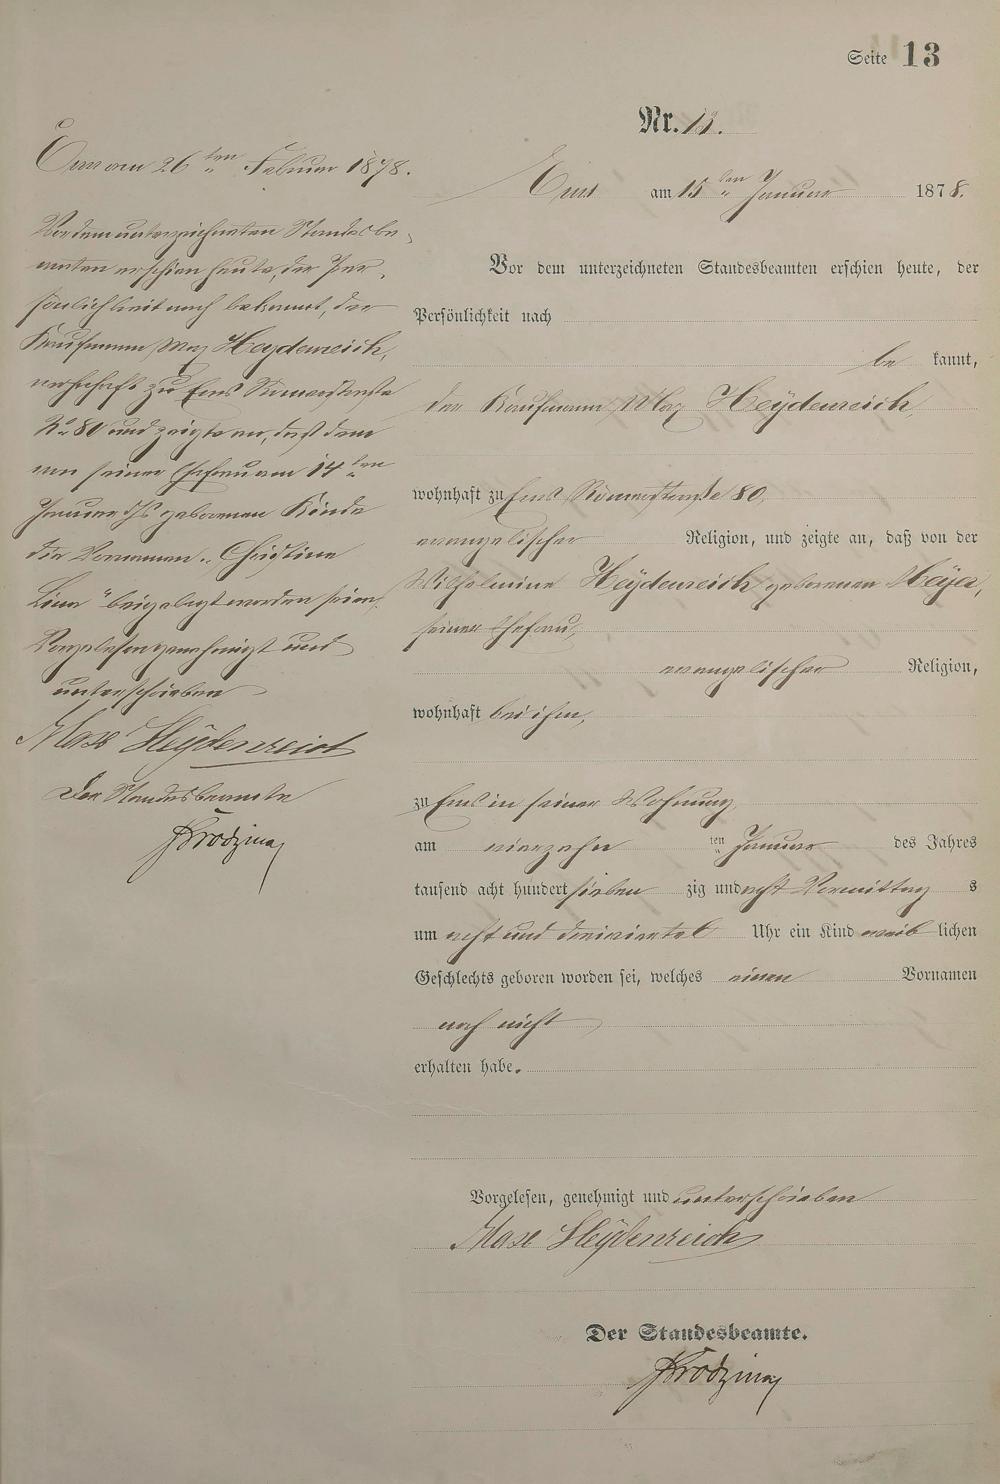 Seite 13
Nr. 13.
Ems am 15ten Januar 1878.
Vor dem unterzeichneten Standesbeamten erschien heute, der
Persönlichkeit nach
be kannt,
der Kaufmann Max Heÿdenreich,
wohnhaft zu Ems Römerstraße 80,
evangelischer Religion, und zeigte an, daß von der
Wilhelmine Heÿdenreich geborenen Meÿer,
seiner Ehefrau,
evangelischer Religion,
wohnhaft bei ihm,
zu Ems in seiner Wohnung,
am vierzehnten Januar des Jahres
tausend acht hundert sieben zig und acht Vormittag s
um acht und dreiviertel Uhr ein Kind weib lichen
Geschlechts geboren worden sei, welches einen Vornamen
noch nicht
erhalten habe.
Vorgelesen, genehmigt und unterschrieben
Max Heÿdenreich
Der Standesbeamte.
Ems am 26ten Februar 1878.
Vor dem unterzeichneten Standesbe-
amten erschien heute, der Per-
sönlichkeit nach bekannt, der
Kaufmann Max Heydenreich,
wohnhaft zu Ems Römerstraße
No 80 und zeigte an, daß dem
von seiner Ehefrau am 14ten
Januar d Js geborenen Kinde
die Vornamen „Christine
Lina" beigelegt worden seien.
Vorgelesen genehmigt und
unterschrieben
Max Heÿdenreich
Der Standesbeamte